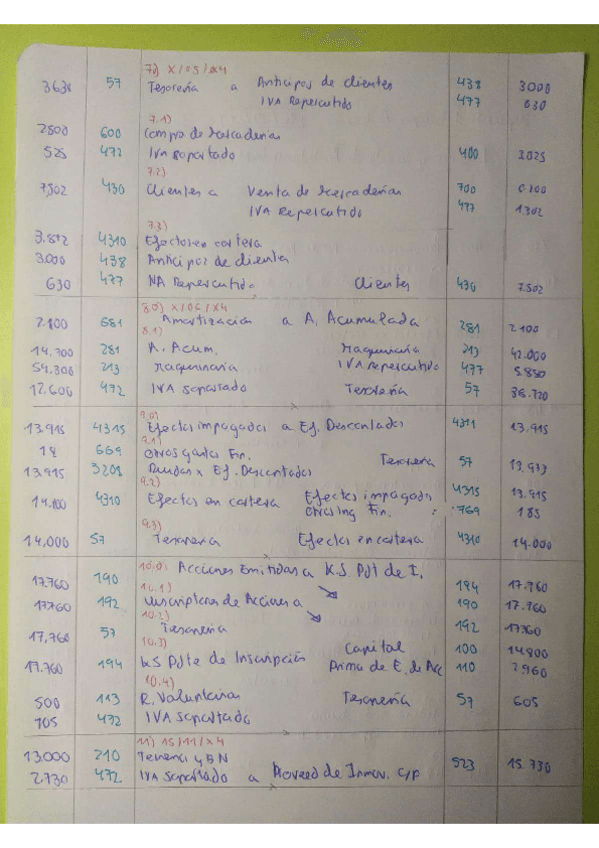 7) X/05/X4
3630 57 Tesorería a Anticipos de clientes 438 3000
IVA Repercutido 477 630
7.1)
2500 600 Compra de Mercaderías
525 472 IVA soportado 400 3.025
7.2)
7.502 430 Clientes a Venta de Mercaderías 700
IVA Repercutido 477 1.302
7.3)
3.872 4310 Efectos en cartera
3.000 438 Anticipos de clientes
630 477 IVA Repercutido Clientes 430 7.502
8.0) X/06/X4
2.100 681 Amortización a A. Acumulada 281 2.100
8.1)
14.700 281 A. Acum. Maquinaria 213 42.000
54.300 213 Maquinaria IVA repercutido 477 5.880
12.600 472 IVA soportado Tesorería 57
9.0)
13.915 4315 Efectos impagados a Ef. Descontados 4311 13.915
9.1)
18 669 Otros gastos Fin. Tesorería 57 13.933
13.915 5208 Deudas x Ef. Descontados
9.2)
14.100 4310 Efectos en cartera Efectos impagados 4315 13.915
Otros Ing Fin. 769 185
9.3)
14.000 57 Tesorería Efectos en cartera 4310 14.000
10.0) Acciones Emitidas a
17.760 190 K.S. Pdt de I. 194 17.760
10.1)
17.760 192 Suscriptores de Acciones a 190 17.760
10.2)
17.760 57 Tesorería 192 17.760
10.3)
17.760 194 K.S Pdte de Inscripción Capital 100 14.800
Prima de E. de Acc 110 2.960
10.4)
500 113 R. Voluntarias Tesorería 57 605
105 472 IVA soportado
11) 15/11/X4
13.000 210 Terrenos y BN
2.730 472 IVA soportado a Proveed de Inmov. C/P 523 15.730